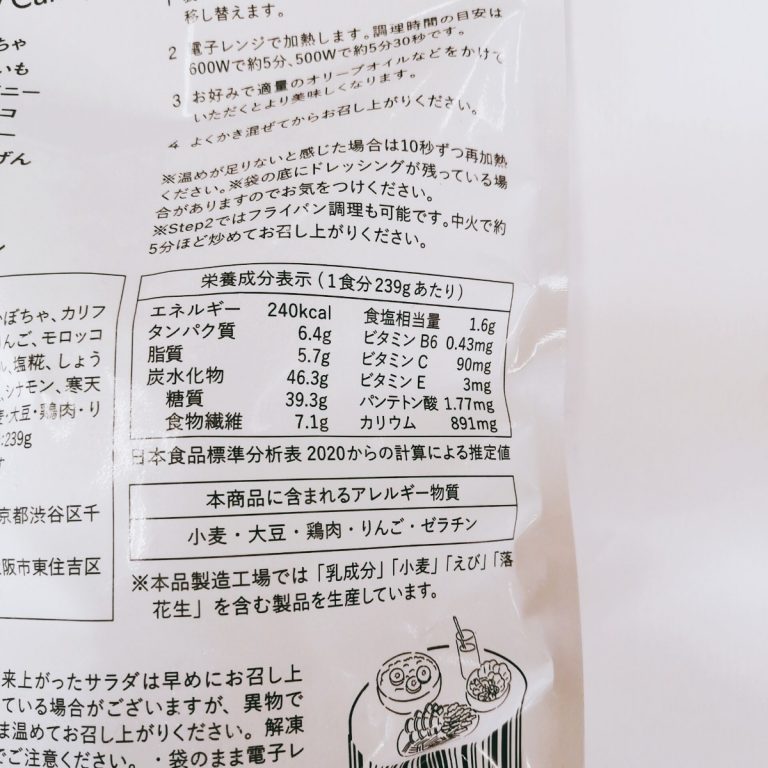 移し替えます。
2 電子レンジで加熱します。調理時間の目安は
600Wで約5分、500Wで約5分30秒です。
3 お好みで適量のオリーブオイルなどをかけて
いただくとより美味しくなります。
4 よくかき混ぜてからお召し上がりください。
※温めが足りないと感じた場合は10秒ずつ再加熱
ください。※袋の底にドレッシングが残っている場
合がありますのでお気をつけください。
※Step2ではフライパン調理も可能です。中火で約
5分ほど炒めてお召し上がりください。
ちゃ
いも
ニー
コ
ー
げん
ン
栄養成分表示（1食分239gあたり）
エネルギー 240kcal
タンパク質 6.4g
脂質 5.7g
炭水化物 46.3g
糖質 39.3g
食物繊維 7.1g
食塩相当量 1.6g
ビタミン B6 0.43mg
ビタミン C 90mg
ビタミン E 3mg
パンテトン酸 1.77mg
カリウム 891mg
日本食品標準分析表 2020からの計算による推定値
本商品に含まれるアレルギー物質
小麦・大豆・鶏肉・りんご・ゼラチン
※本品製造工場では「乳成分」「小麦」「えび」「落
花生」を含む製品を生産しています。
かぼちゃ、カリフ
りんご、モロッコ
ル、塩糀、しょう
シナモン、寒天
麦・大豆・鶏肉・り
:239g
京都渋谷区千
阪市東住吉区
来上がったサラダは早めにお召し上
ている場合がございますが、異物で
ま温めてお召し上がりください。解凍
でご注意ください。・袋のまま電子レ